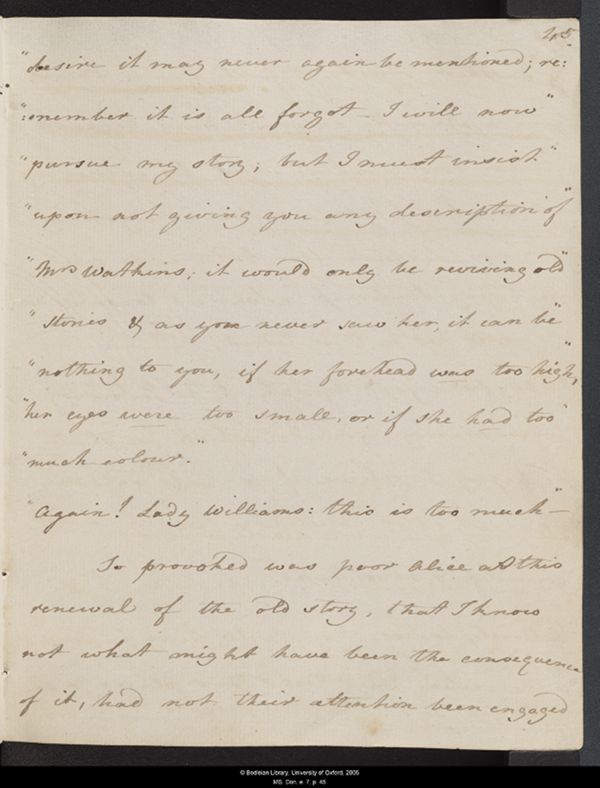 45
"desire it may never again be mentioned; re:
":member it is all forgot – I will now"
"pursue my story; but I must insist"
"upon not giving you any description of"
"Mrs Watkins; it would only be reviving old"
"stories & as you never saw her, it can be"
"nothing to you, if her forehead was too high,"
"her eyes were too small, or if she had too"
"much colour."
"Again! Lady Williams: this is too much" –
So provoked was poor Alice at this
renewal of the old story, that I know
not what might have been the consequence
of it, had not their attention been engaged
© Bodleian Library, University of Oxford, 2005
MS. Don. e. 7, p. 45